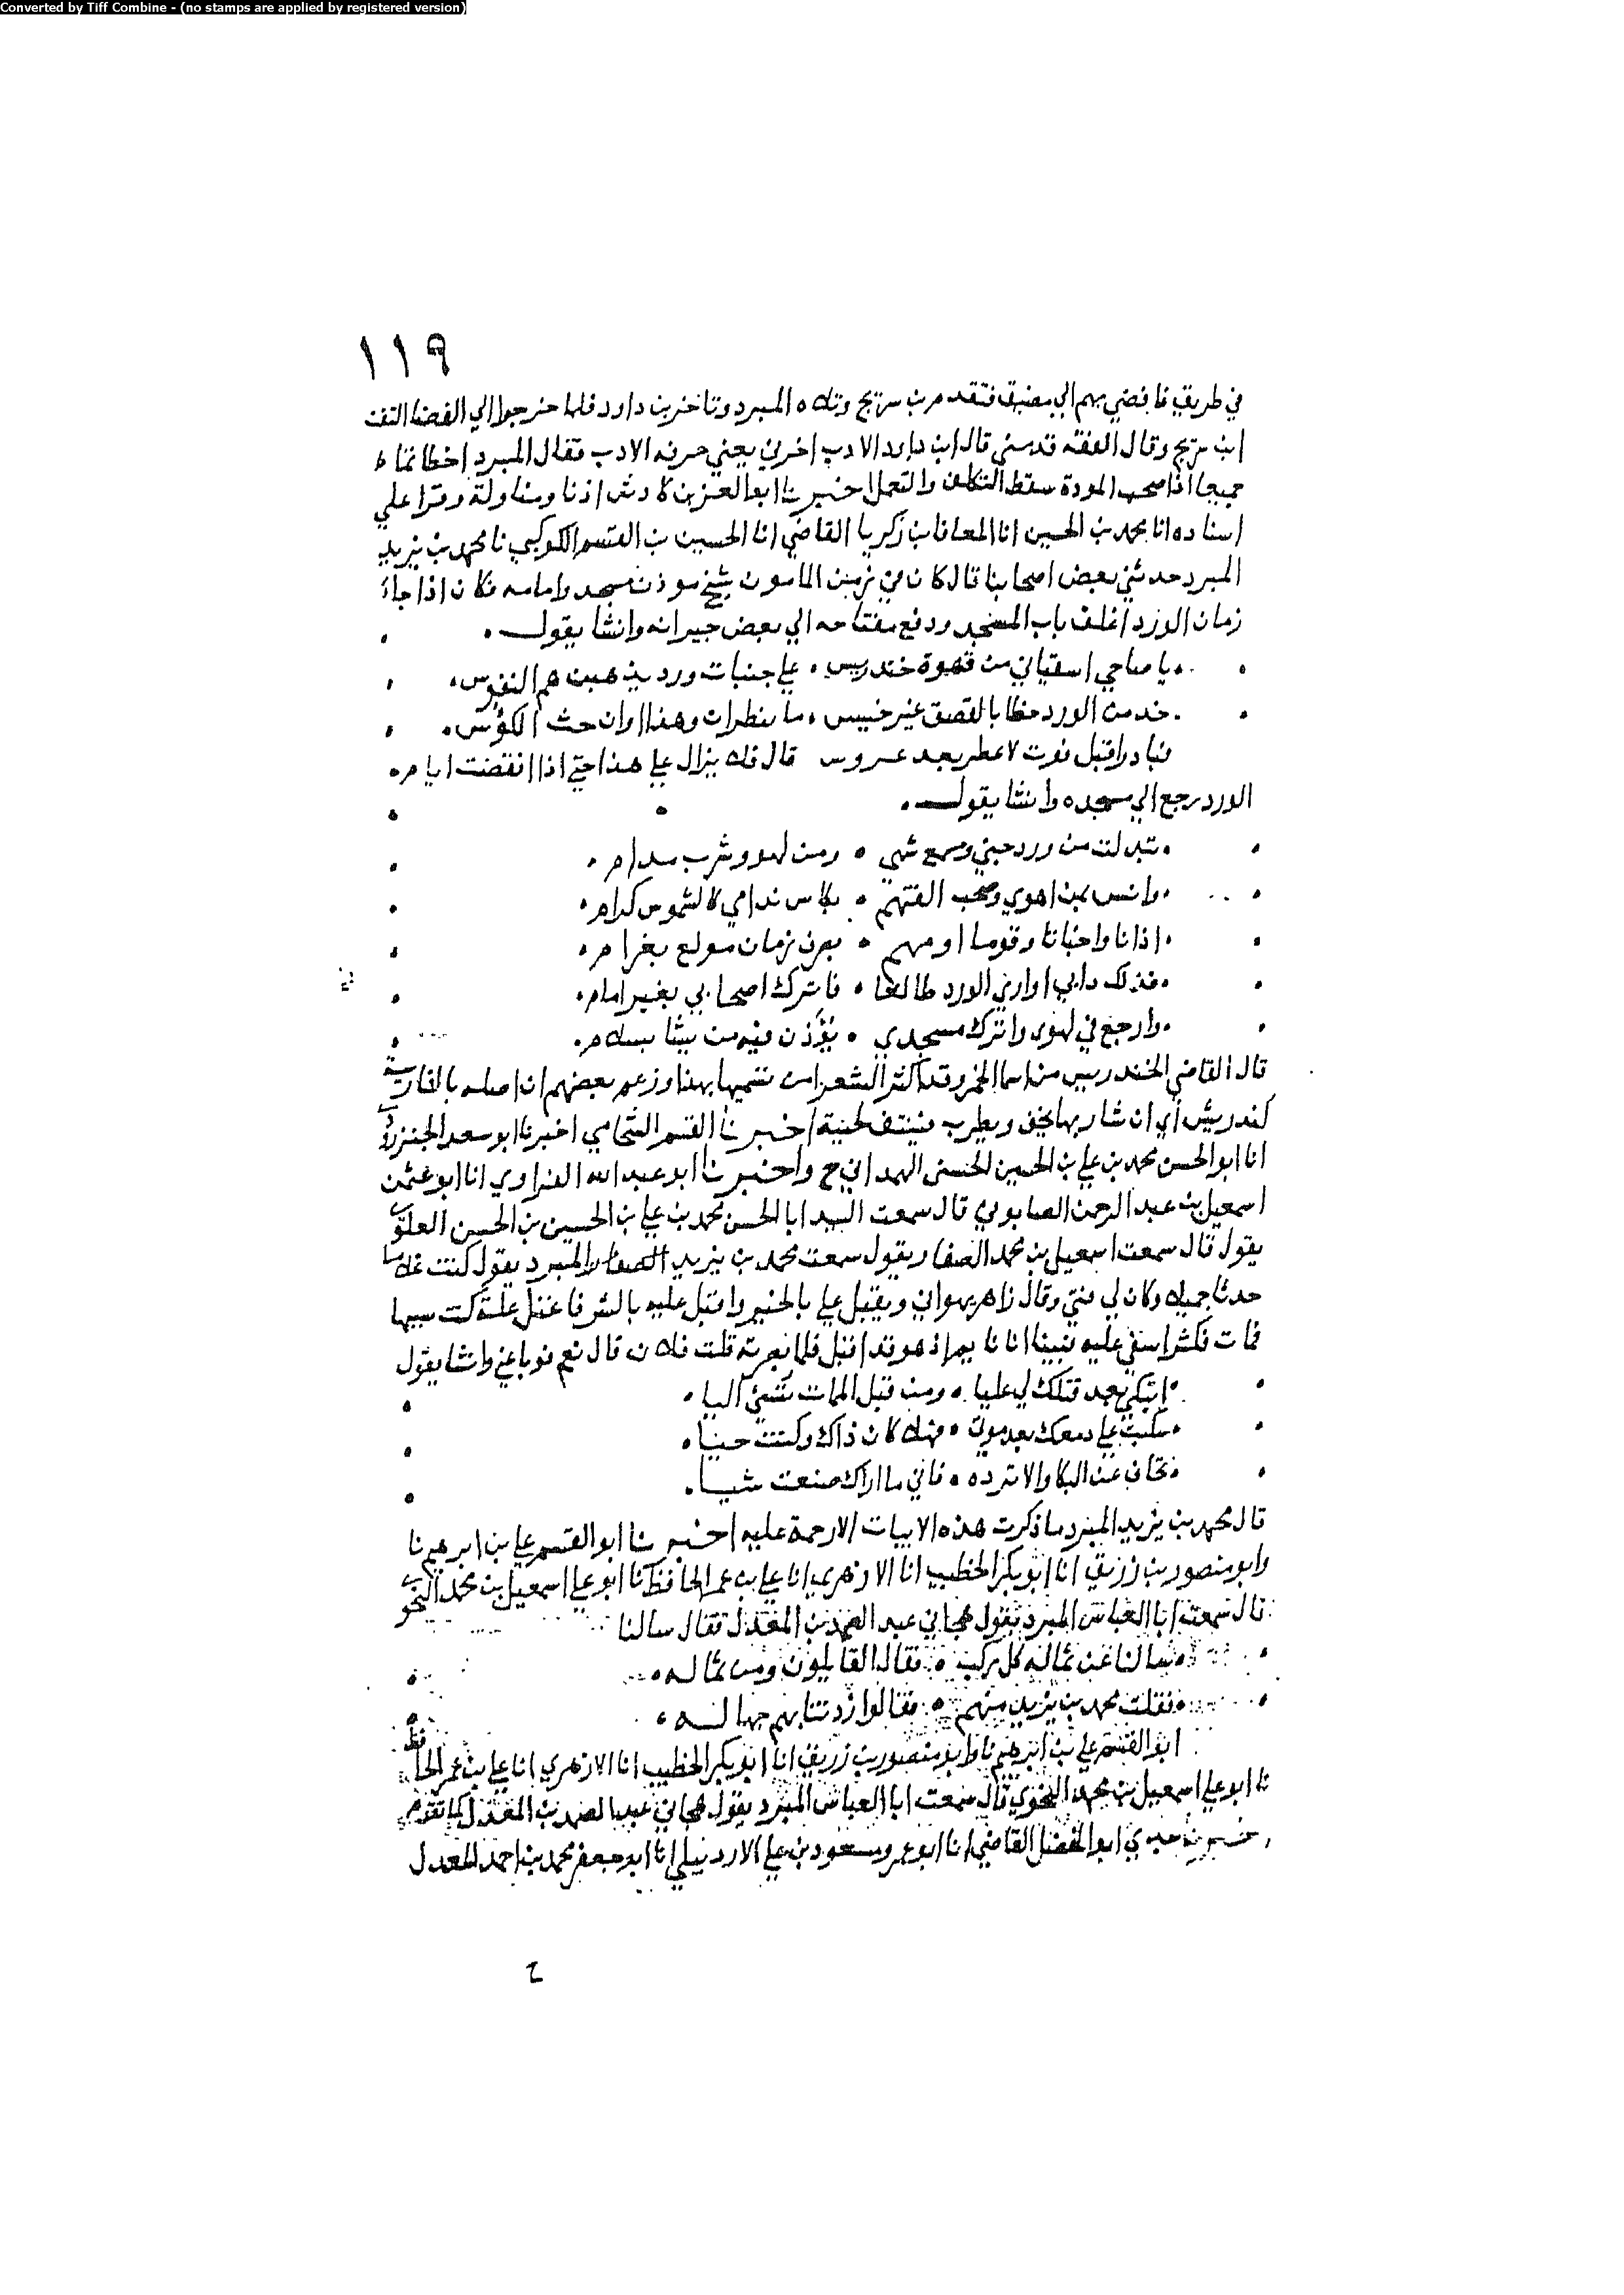 Converted by Tiff Combine - (no stamps are applied by registered version)
١١٩
في طريق فافضي بهم الي مضيق فتقدم بن سريج وتلاه المبرد وتاخر بن داود فلما خرجوا الي الفضا التفت
ابن سريج وقال الفقه قدمني قال ابن داود الادب اخرني يعني حرفه الادب فقال المبرد اخطاتما
جميعا اذا صحب المودة سقط التكلف والتعمل اخبرنا ابو العز بن كادش اذنا ومناولة وقرا علي
اسناده انا محمد بن الحسين انا المعافا بن زكريا القاضي انا الحسين بن القسم الكوكبي نا محمد بن يزيد
المبرد حدثني بعض اصحابنا قال كان في زمن المامون شيخ موذن مسجد وامامه فكان اذا جاء
زمان الورد اغلق باب المسجد ودفع مفتاحه الي بعض جيرانه وانشا يقول
يا صاحبي اسقياني من قهوة خندريس علي جنبات ورد يذهبن هم النفوس
خذ من الورد حظا بالقصف غير خسيس ما تنظران وهذا اوان حث الكؤس
فبادرا قبل فوت لا عطر بعد عروس قال فلا يزال علي هذا حتي اذا انقضت ايام
الورد رجع الي مسجده وانشا يقول
تبدلت من ورد جني ومسمع شهي ومن لهو وشرب مدام
وانس بمن اهوي وصحب الفتهم بكاس ندامي كالشموس كرام
اذانا واخباتا وقوما اومهم بصرف زمان مولع بغرام
فذلك دابي او اري الورد طالعا فاترك اصحابي بغير امام
وارجع في لهوي واترك مسجدي يؤذن فيه من يشا بسلام
قال القاضي الخندريس من اسما الخمر وقد اكثر الشعرا من تسميها بهذا وزعم بعضهم ان اصله بالفارسية
كندريش اي ان شاربها يخف ويطرب فينتف لحيته اخبرنا القسم الشحامي اخبرنا ابو سعد الجنزرودي
انا ابو الحسن محمد بن علي بن الحسين الحسني الهمداني ح واخبرنا ابو عبد الله الفراوي انا ابو عثمن
اسمعيل بن عبد الرحمن الصابوني قال سمعت السيد ابا الحسن محمد بن علي بن الحسين بن الحسن العلوي
يقول قال سمعت اسمعيل بن محمد الصفار يقول سمعت محمد بن يزيد المبرد يقول كنت غلاما
حدثا جميلا وكان لي فتي وقال زاهر يهواني ويقبل علي بالخير واقبل عليه بالشر فاعتل علة كنت سببها
فمات فكثر اسفي عليه فبينا انا نايم اذ هو قد اقبل فلما بصرته قلت فلان قال نعم فوبا عني وانشا يقول
اتبكي بعد قتلك لي عليا ومن قبل الممات تسي اليا
سكبت علي دمعك بعد موتي فهلا كان ذاك وكنت حيا
تجاف عن البكا ولا تزده فاني ما اراك صنعت شيا
قال محمد بن يزيد المبرد ما ذكرت هذه الابيات الا رحمة عليه اخبرنا ابو القسم علي بن ابرهيم نا
وابو منصور بن زريق انا ابو بكر الخطيب انا الازهري انا علي بن عمر الحافظ نا ابو علي اسمعيل بن محمد النحوي
قال سمعت ابا العباس المبرد يقول هجاني عبد الصمد بن المعذل فقال سالنا
سالنا عن ثماله كل ركب فقال القايلون ومن ثماله
فقلت محمد بن يزيد منهم فقالوا زدتنا بهم جهاله
ابو القسم علي بن ابرهيم نا وابو منصور بن زريق انا ابو بكر الخطيب انا الازهري انا علي بن عمر الحافظ
نا ابو علي اسمعيل بن محمد النحوي قال سمعت ابا العباس المبرد يقول هجاني عبد الصمد بن المعذل كما تقدم
جدي ابو الفضل القاضي انا ابو عمرو مسعود بن علي الاردبيلي انا ابو جعفر محمد بن احمد المعدل